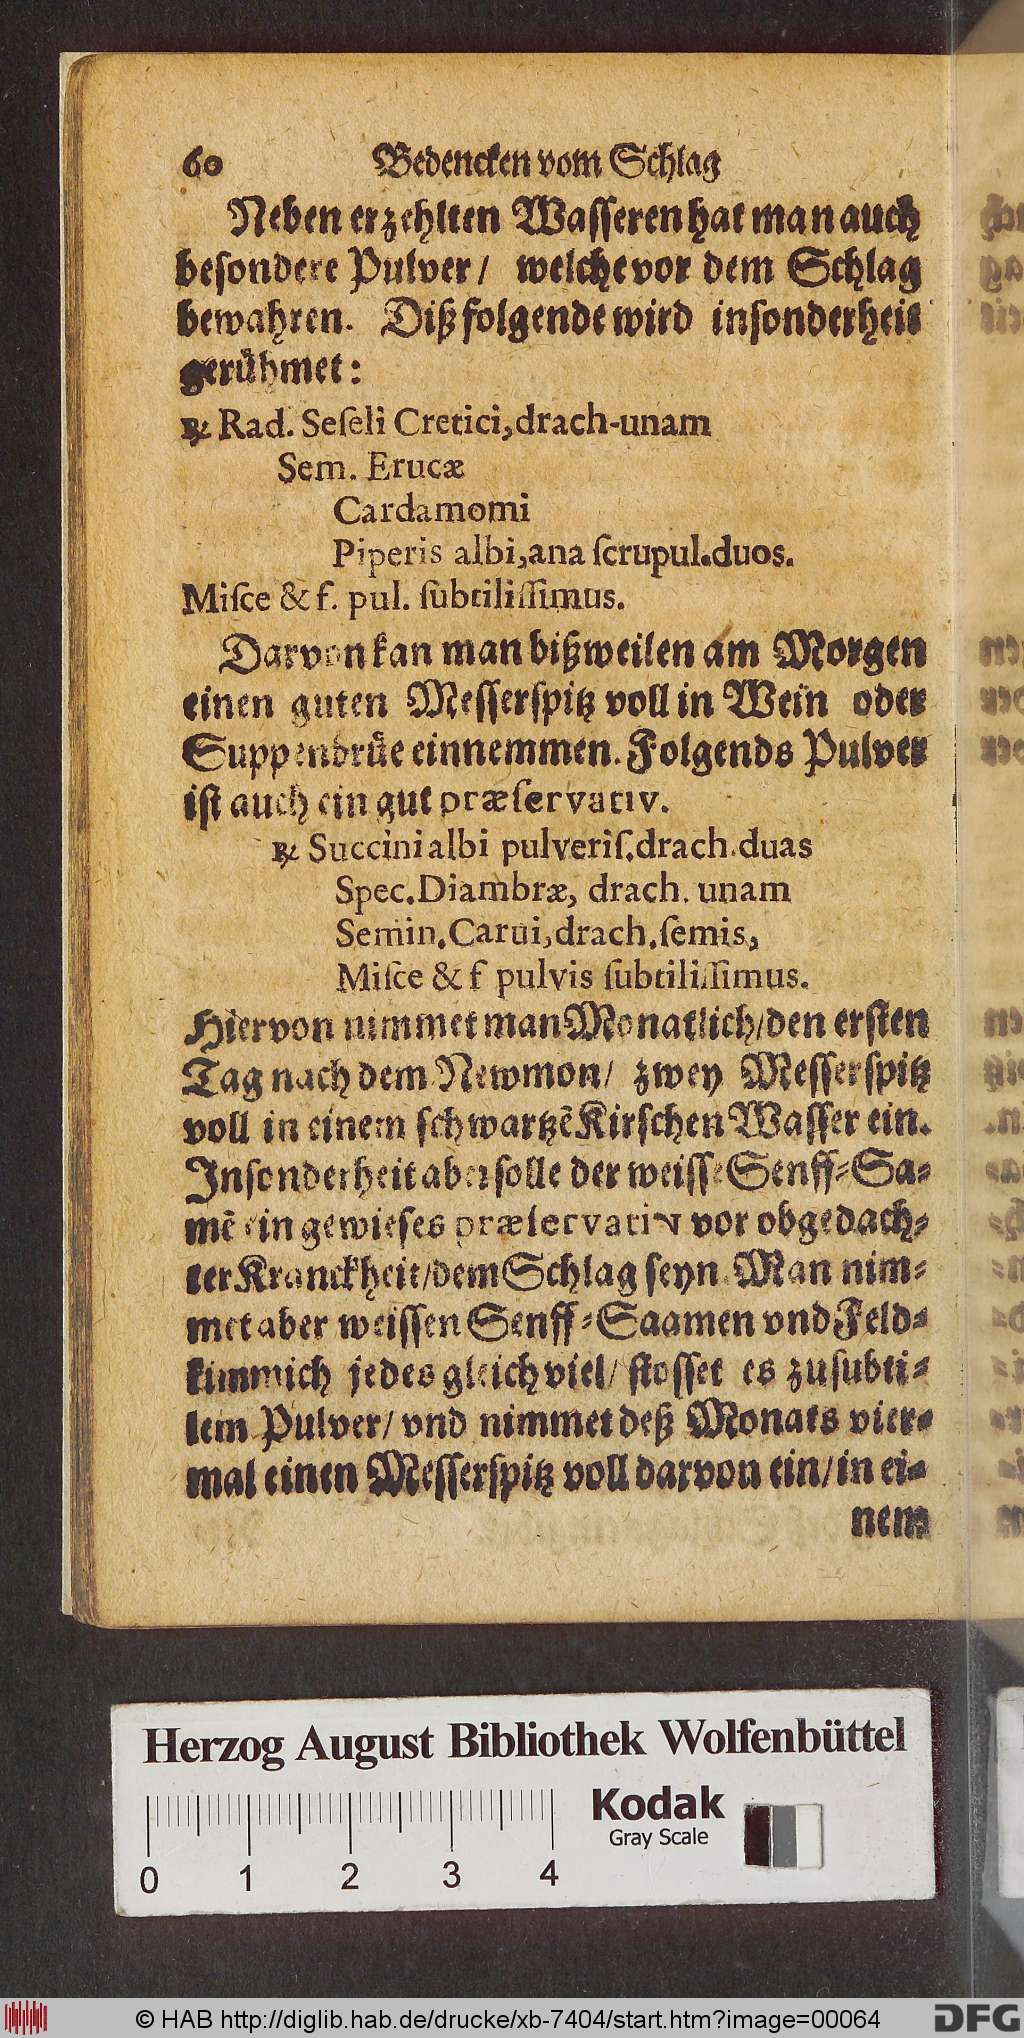 60 Bedencken vom Schlag
Neben erzehlten Wasseren hat man auch
besondere Pulver / welche vor dem Schlag
bewahren. Diß folgende wird insonderheit
gerühmet:
℞ Rad. Seſeli Cretici, drach-unam
Sem. Erucæ
Cardamomi
Piperis albi, ana ſcrupul. duos.
Miſce & f. pul. ſubtiliſſimus.
Darvon kan man bißweilen am Morgen
einen guten Messerspitz voll in Wein oder
Suppenbrüe einnemmen. Folgends Pulver
ist auch ein gut præſervativ.
℞ Succini albi pulveriſ. drach. duas
Spec. Diambræ, drach. unam
Semin. Carui, drach. ſemis,
Miſce & f pulvis ſubtiliſſimus.
Hiervon nimmet man Monatlich / den ersten
Tag nach dem Newmon / zwey Messerspitz
voll in einem schwartzẽ Kirschen Wasser ein.
Insonderheit aber solle der weisse Senff-Sa-
mẽ ein gewieses præſervativ vor obgedach-
ter Kranckheit / dem Schlag seyn. Man nim-
met aber weissen Senff-Saamen vnd Feld-
kimmich jedes gleich viel / stosset es zu subti-
lem Pulver / vnd nimmet deß Monats vier-
mal einen Messerspitz voll darvon ein / in ei-
nem
Herzog August Bibliothek Wolfenbüttel
Kodak
Gray Scale
0 1 2 3 4
© HAB http://diglib.hab.de/drucke/xb-7404/start.htm?image=00064
DFG